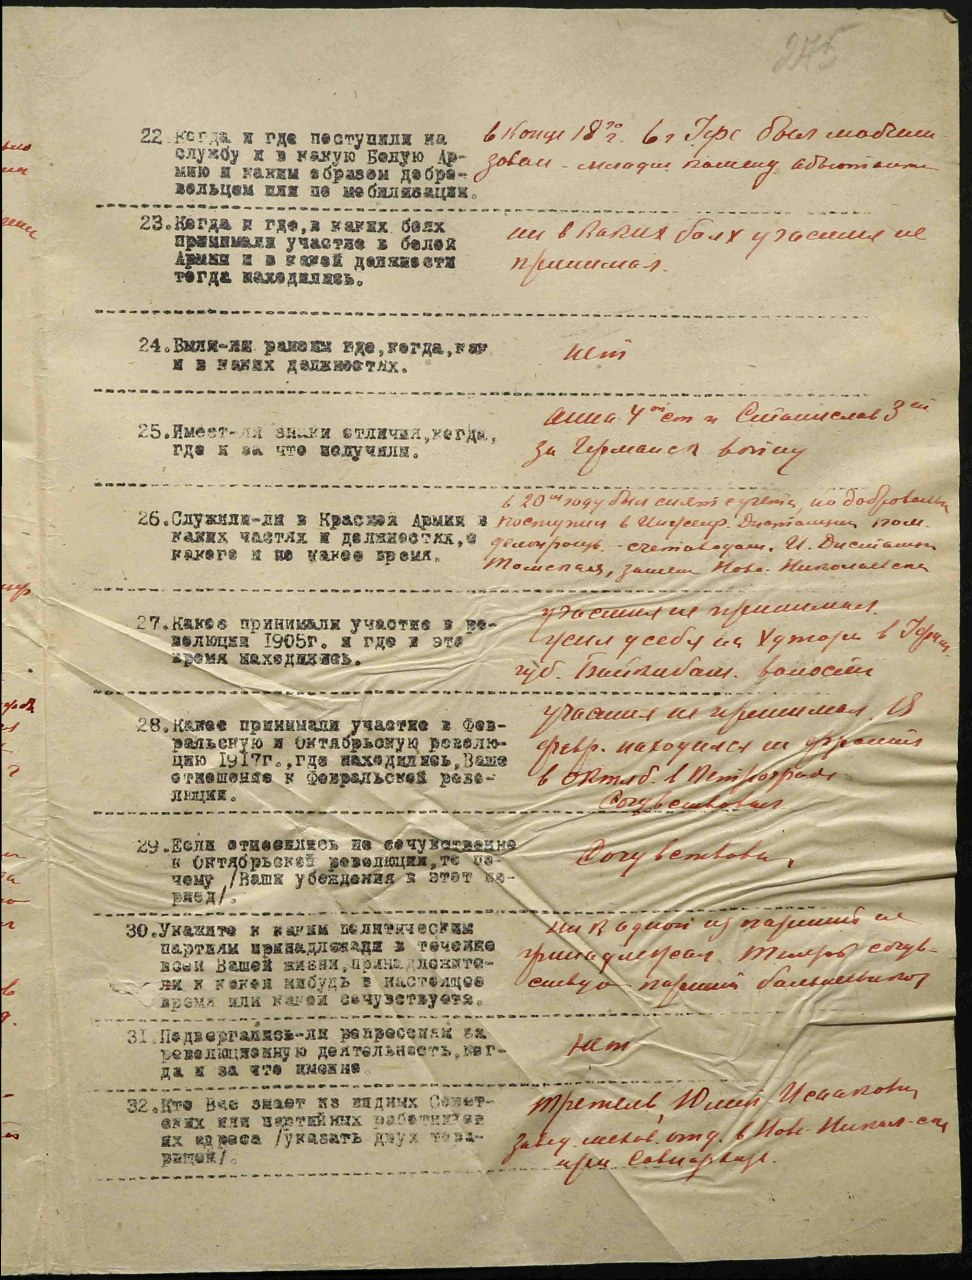 275
22. Когда и где поступили на
службу и в какую Белую Ар-
мию и каким образом добро-
вольцем или по мобилизации.
в конце 18го г. в г Уфе был мобили
зован - младш. помощ. адъютанта
23. Когда и где, в каких боях
принимали участие в белой
Армии и в какой должности
тогда находились.
ни в каких боях участия не
принимал.
24. Были-ли ранены где, когда, как
и в каких должностях.
нет
25. Имеет-ли знаки отличия, когда,
где и за что получили.
Анна 4ой ст и Станислав 3ей
за Германск войну
26. Служили-ли в Красной Армии в
каких частях и должностях, с
какого и по какое время.
в 20ом году был снят с учета, но добровольн
поступил в Инжен. Дистанции пом.
делопроизв. - счетоводом. И. Дистанции
Томская, затем Ново-Николаевска
27. Какое принимали участие в ре-
волюции 1905г. и где в это
время находились.
участия не принимал.
жил у себя на хуторе в Уфим.
губ. волости
28. Какое принимали участие в Фев-
ральскую и Октябрьскую револю-
цию 1917г., где находились, Ваше
отношение к Февральской рево-
люции.
участия не принимал. В
февр. находился на фронте
в октяб. в Петрограде
Сочувствовал
29. Если относились не сочувственно
к Октябрьской революции, то по-
чему /Ваши убеждения в этот пе-
риод/.
Сочувствовал
30. Укажите к каким политическим
партиям принадлежали в течение
всей Вашей жизни, принадлежите-
ли к какой нибудь в настоящее
время или какой сочувствуете.
ни к одной из партий не
принадлежал. Теперь сочув-
ствую партии большевиков
31. Подвергались-ли репрессиям за
революционную деятельность, ког-
да и за что именно.
нет
32. Кто Вас знает из видных Совет-
ских или партийных работников
их адреса /указать двух това-
рищей/.
Третель, Юлий Исаакович
завед. отд. в Нов. Никол-ске
при